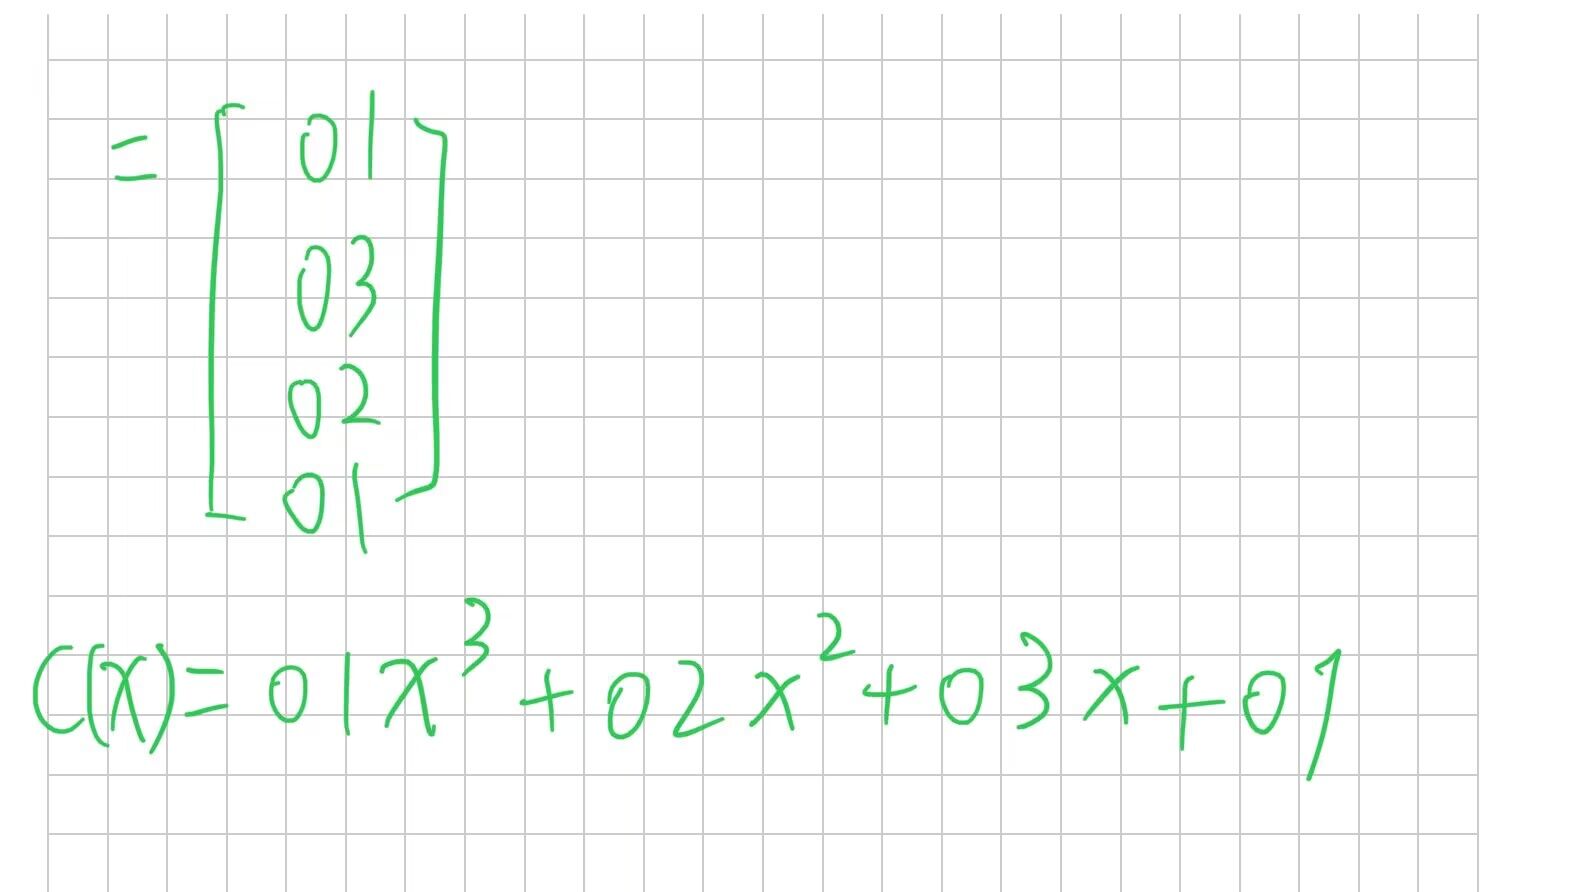 = [ 01
03
02
01 ]
C(x)=01x³+02x²+03x+01